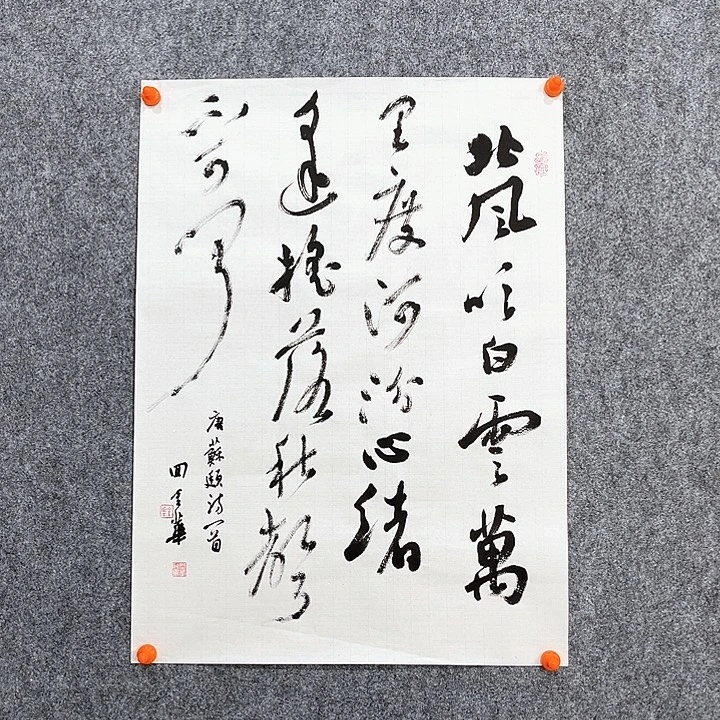 北風吹白雲萬
里度河汾心緒
逢搖落秋聲
不可聞
唐蘇頲詩一首
田華